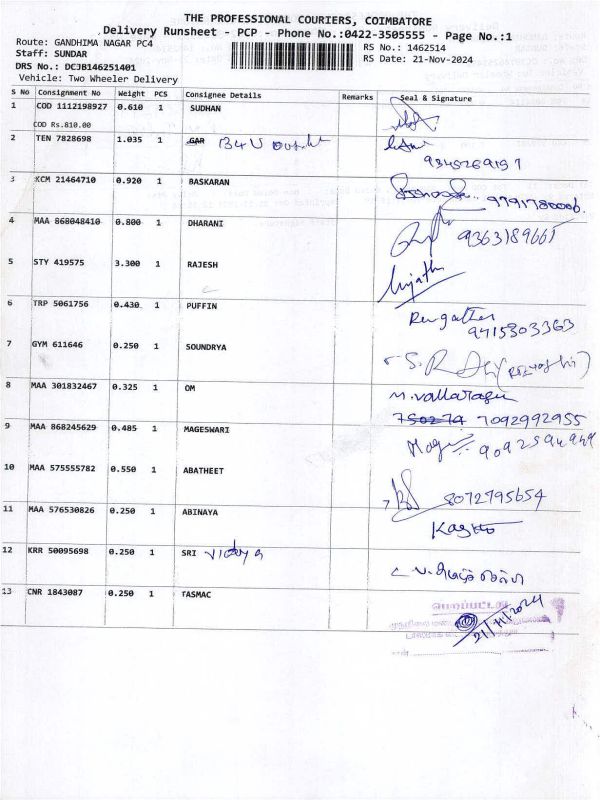 THE PROFESSIONAL COURIERS, COIMBATORE
Delivery Runsheet - PCP - Phone No.:0422-3505555 - Page No.:1
Route: GANDHIMA NAGAR PC4 RS No.: 1462514
Staff: SUNDAR RS Date: 21-Nov-2024
DRS No.: DCJB146251401
Vehicle: Two Wheeler Delivery
S No Consignment No Weight PCS Consignee Details Remarks Seal & Signature
1 COD 1112198927 0.610 1 SUDHAN
COD Rs.810.00
2 TEN 7828698 1.035 1 GAR
3 KCM 21464710 0.920 1 BASKARAN 9791780006.
4 MAA 868048410 0.800 1 DHARANI 9363189661
5 STY 419575 3.300 1 RAJESH
6 TRP 5061756 0.430 1 PUFFIN
9715303363
7 GYM 611646 0.250 1 SOUNDRYA
8 MAA 301832467 0.325 1 OM
7092992955
9 MAA 868245629 0.485 1 MAGESWARI
10 MAA 575555782 0.550 1 ABATHEET 8072795654
11 MAA 576530826 0.250 1 ABINAYA
12 KRR 50095698 0.250 1 SRI Vidya
13 CNR 1843087 0.250 1 TASMAC
21/11/2024